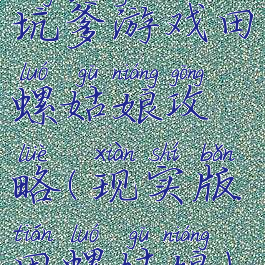 坑爹游戏田
luó gū niáng gōng
螺姑娘攻
lüè xiàn shí bǎn
略(现实版
tián luó gū niáng
田螺姑娘)